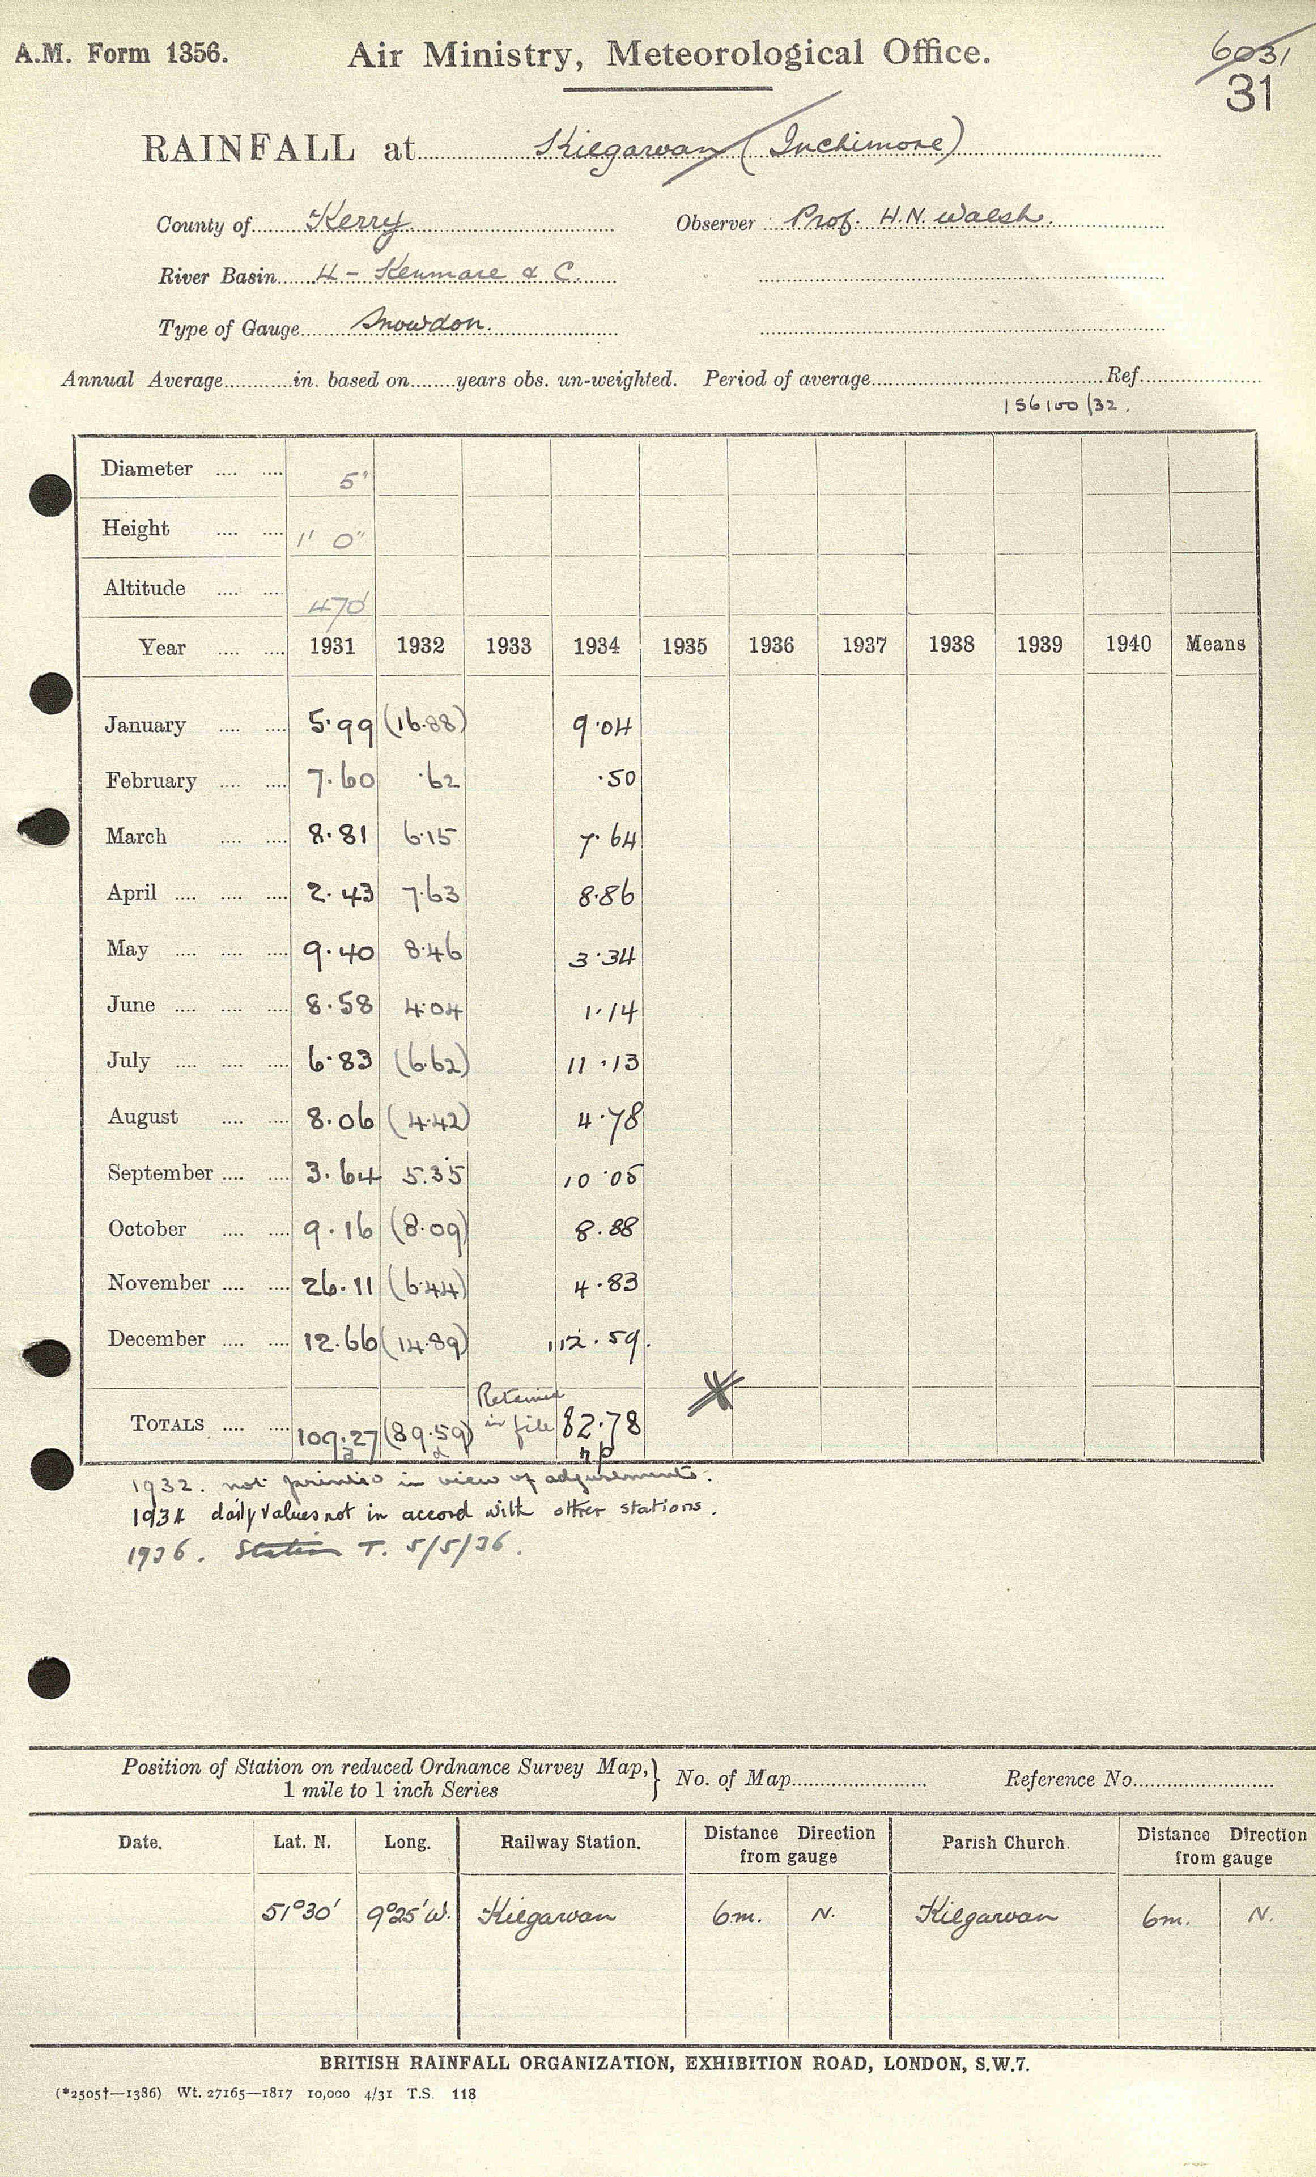 A.M. Form 1356. Air Ministry, Meteorological Office. 6031
31
RAINFALL at Kilgarvan (Inchimore)
County of Kerry Observer Prof. H.N. Walsh.
River Basin 4 - Kenmare & C.
Type of Gauge Snowdon.
Annual Average in. based on years obs. un-weighted. Period of average Ref.
156100/32.
Diameter .... .... 5"
Height .... .... 1' 0"
Altitude .... .... 470'
Year .... .... 1931 1932 1933 1934 1935 1936 1937 1938 1939 1940 Means
January .... .... 5.99 (16.88) 9.04
February .... .... 7.60 .62 .50
March .... .... 8.81 6.15 7.64
April .... .... .... 2.43 7.63 8.86
May .... .... .... 9.40 8.46 3.34
June .... .... .... 8.58 4.04 1.14
July .... .... .... 6.83 (6.62) 11.13
August .... .... 8.06 (4.42) 4.78
September .... .... 3.64 5.35 10.05
October .... .... 9.16 (8.09) 8.88
November .... .... 26.11 (6.44) 4.83
December .... .... 12.66 (14.89) 12.59
Totals .... .... 109.27 (89.59) Retained in file 82.78
a a np
1932. not printed in view of adjustments.
1934 daily values not in accord with other stations.
1936. Station T. 5/5/36.
Position of Station on reduced Ordnance Survey Map, } No. of Map Reference No.
1 mile to 1 inch Series
Date. Lat. N. Long. Railway Station. Distance Direction Parish Church. Distance Direction
from gauge from gauge
51°30' 9°25'W. Kilgarvan 6m. N. Kilgarvan 6m. N.
BRITISH RAINFALL ORGANIZATION, EXHIBITION ROAD, LONDON, S.W.7.
(*2505†—1386) Wt. 27165—1817 10,000 4/31 T.S. 118